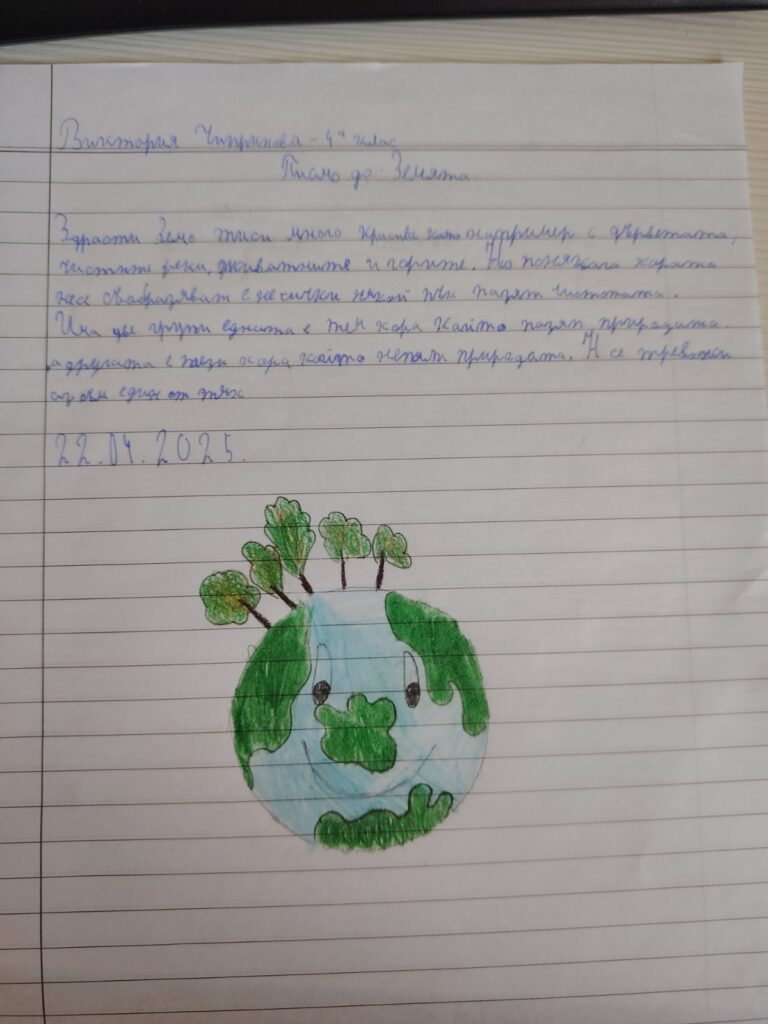 Виктория Чипринова - 4ª клас
Писмо до: Земята
Здрасти Земо тиси много красива като надпример с дърветата,
чистите реки, живатните и горите. Но понякога хората
несе съобразяват с не сички някой пък пазят чистотата.
Има две групи едната е тея хора който пазят природата
а другата е тези хора който непазят природата. Н се тревожи
аз съм един от тях
22.04.2025.